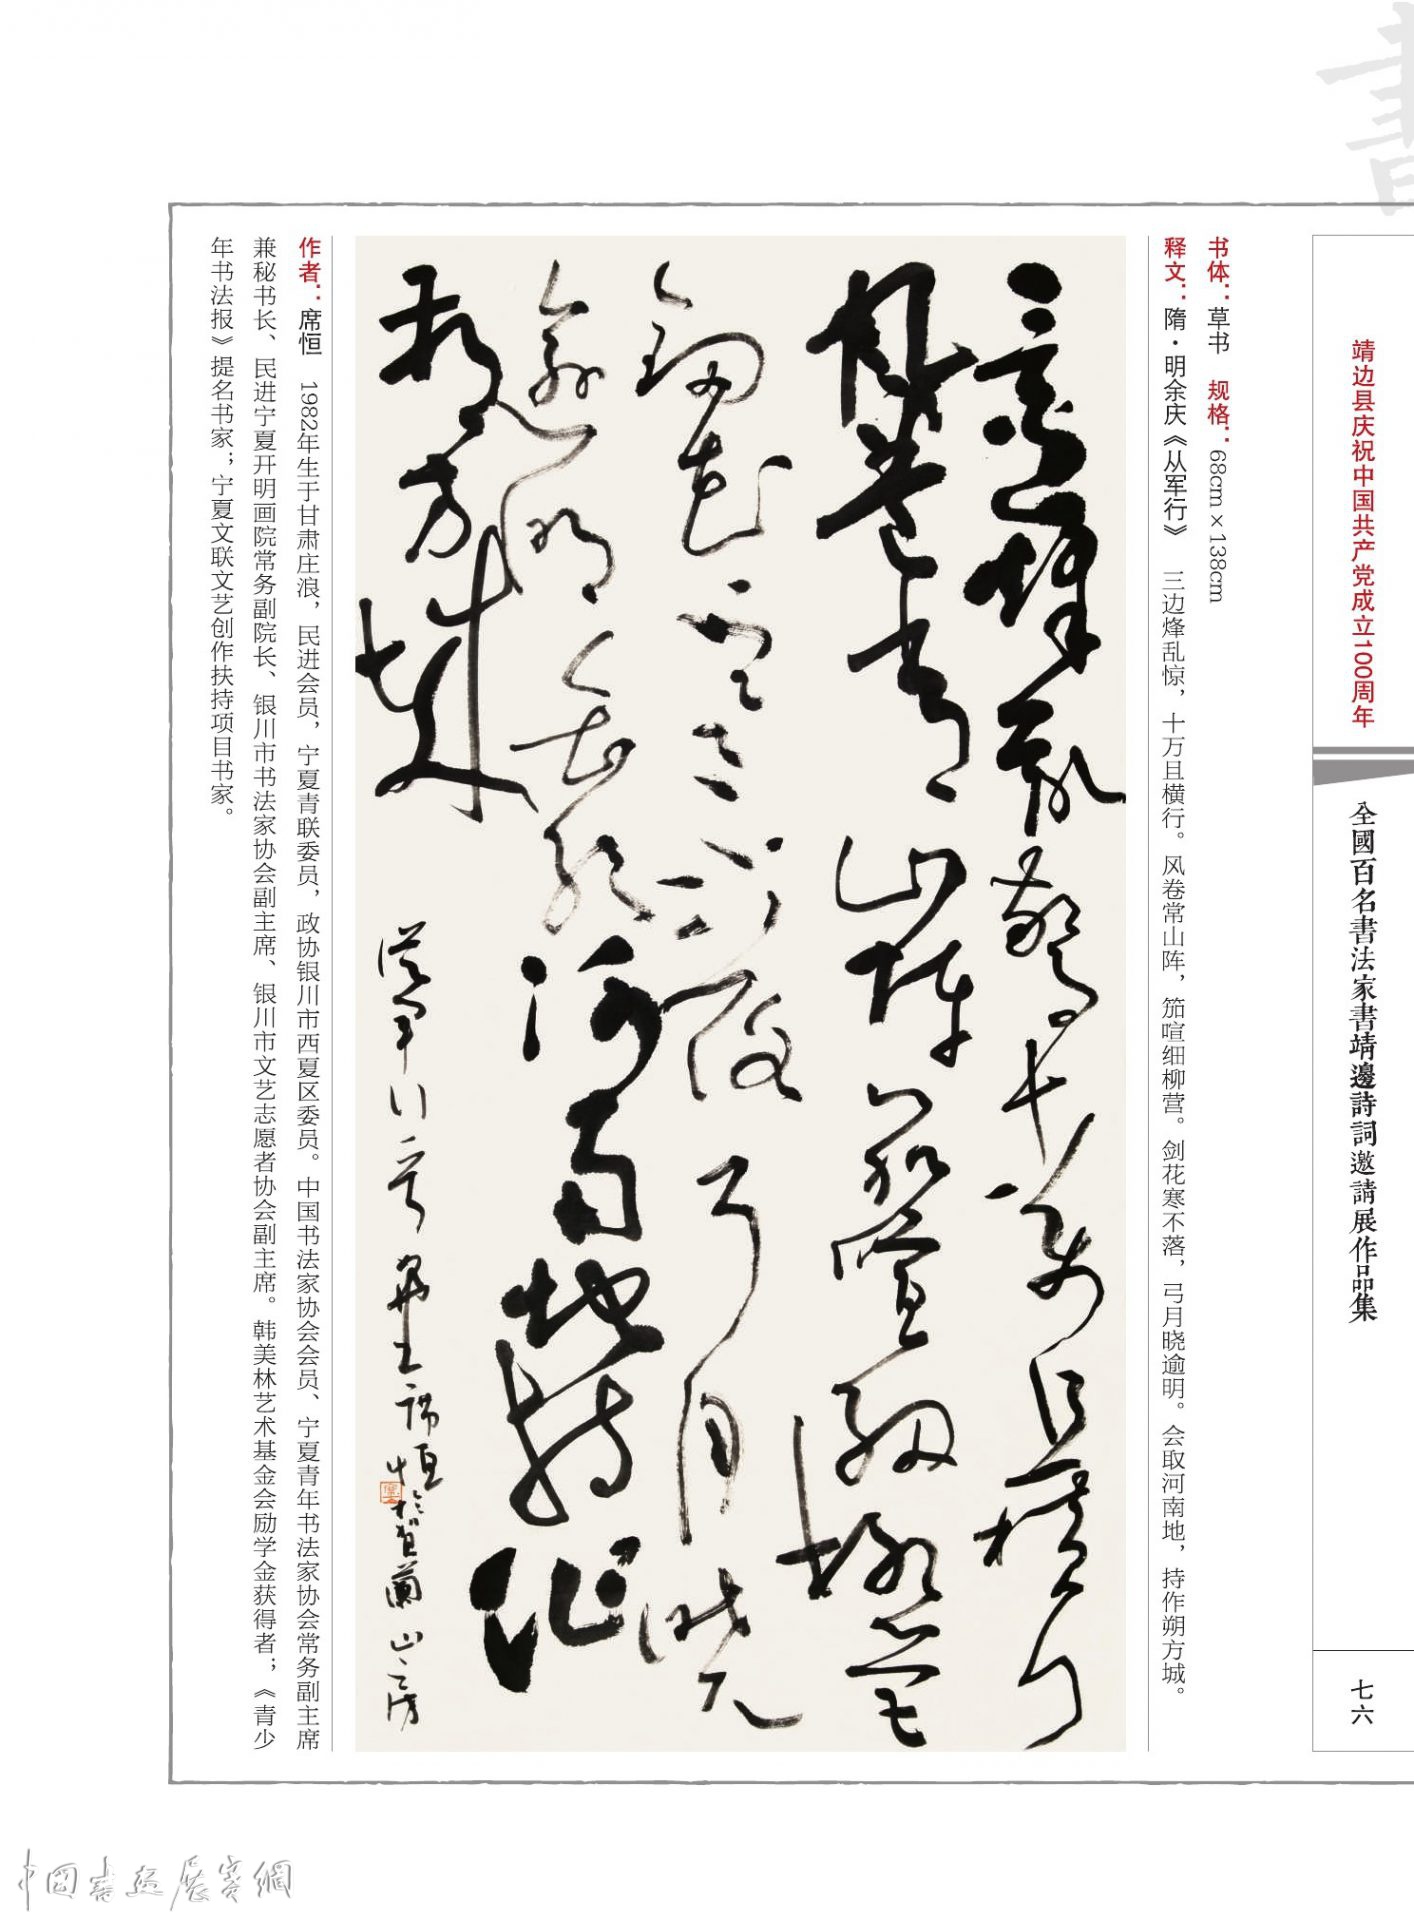 書
靖边县庆祝中国共产党成立100周年
全國百名書法家書靖邊詩詞邀請展作品集
七六
书体：草书 规格：68cm×138cm
释文：隋·明余庆《从军行》 三边烽乱惊，十万且横行。风卷常山阵，笳喧细柳营。剑花寒不落，弓月晓逾明。会取河南地，持作朔方城。
三邊烽亂驚十萬且橫行
風卷常山陣笳喧細柳營
劍花寒不落弓月曉
逾明會取河南地持作
朔方城
從軍行一首 席恒於賀蘭山房
作者：席恒 1982年生于甘肃庄浪，民进会员，宁夏青联委员，政协银川市西夏区委员。中国书法家协会会员、宁夏青年书法家协会常务副主席
兼秘书长、民进宁夏开明画院常务副院长、银川市书法家协会副主席、银川市文艺志愿者协会副主席。韩美林艺术基金会励学金获得者；《青少
年书法报》提名书家；宁夏文联文艺创作扶持项目书家。
中國書画展賽網